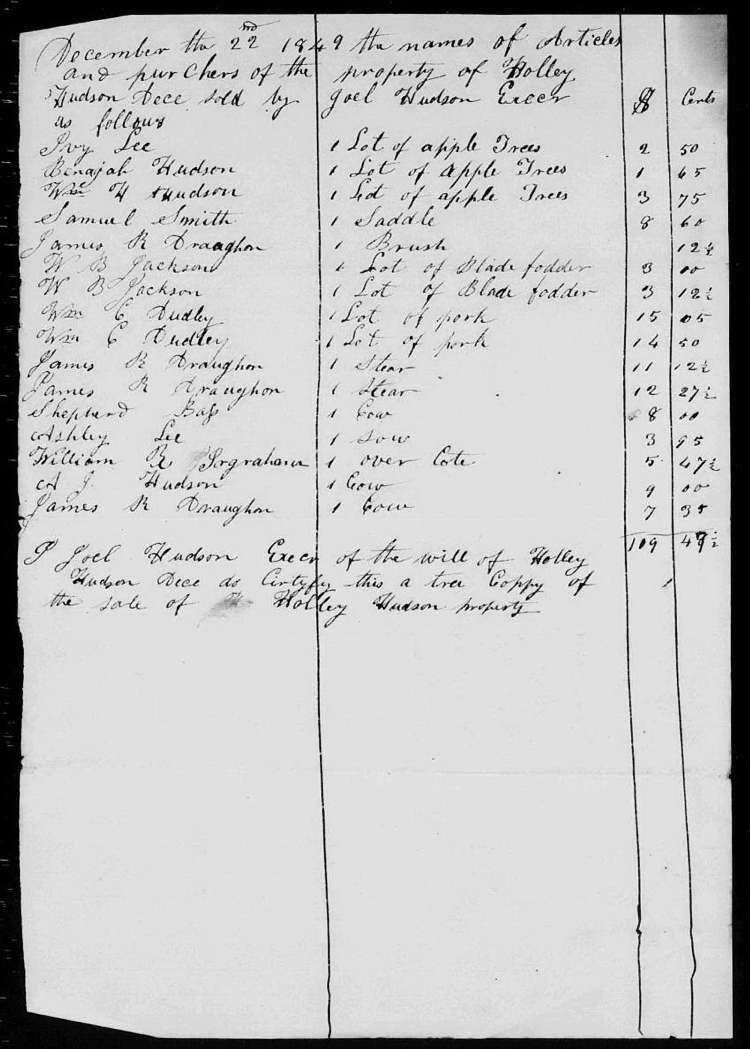 December the 22nd 1849 the names of Articles
and purchers of the property of Holley
Hudson Dece sold by Joel Hudson Execr $ Cents
as follows
Ivy Lee 1 Lot of apple Trees 2 50
Benajah Hudson 1 Lot of Apple Trees 1 65
Wm H Hudson 1 Lot of apple Trees 3 75
Samuel Smith 1 Saddle 8 60
James R Draughon 1 Brush 12½
W B Jackson 1 Lot of Blade fodder 3 00
W B Jackson 1 Lot of Blade fodder 3 12½
Wm C Dudley 1 Lot of pork 15 05
Wm C Dudley 1 Lot of pork 14 50
James R Draughon 1 Stear 11 12½
James R Draughon 1 Stear 12 27½
Shepherd Bass 1 Cow 8 00
Ashley Lee 1 Sow 3 95
William R 1 over Cote 5 47½
A J Hudson 1 Cow 9 00
James R Draughon 1 Cow 7 35
109 47½
I Joel Hudson Execr of the will of Holley
Hudson Dece do Certyfy this a tree Coppy of
the sale of Holley Hudson property